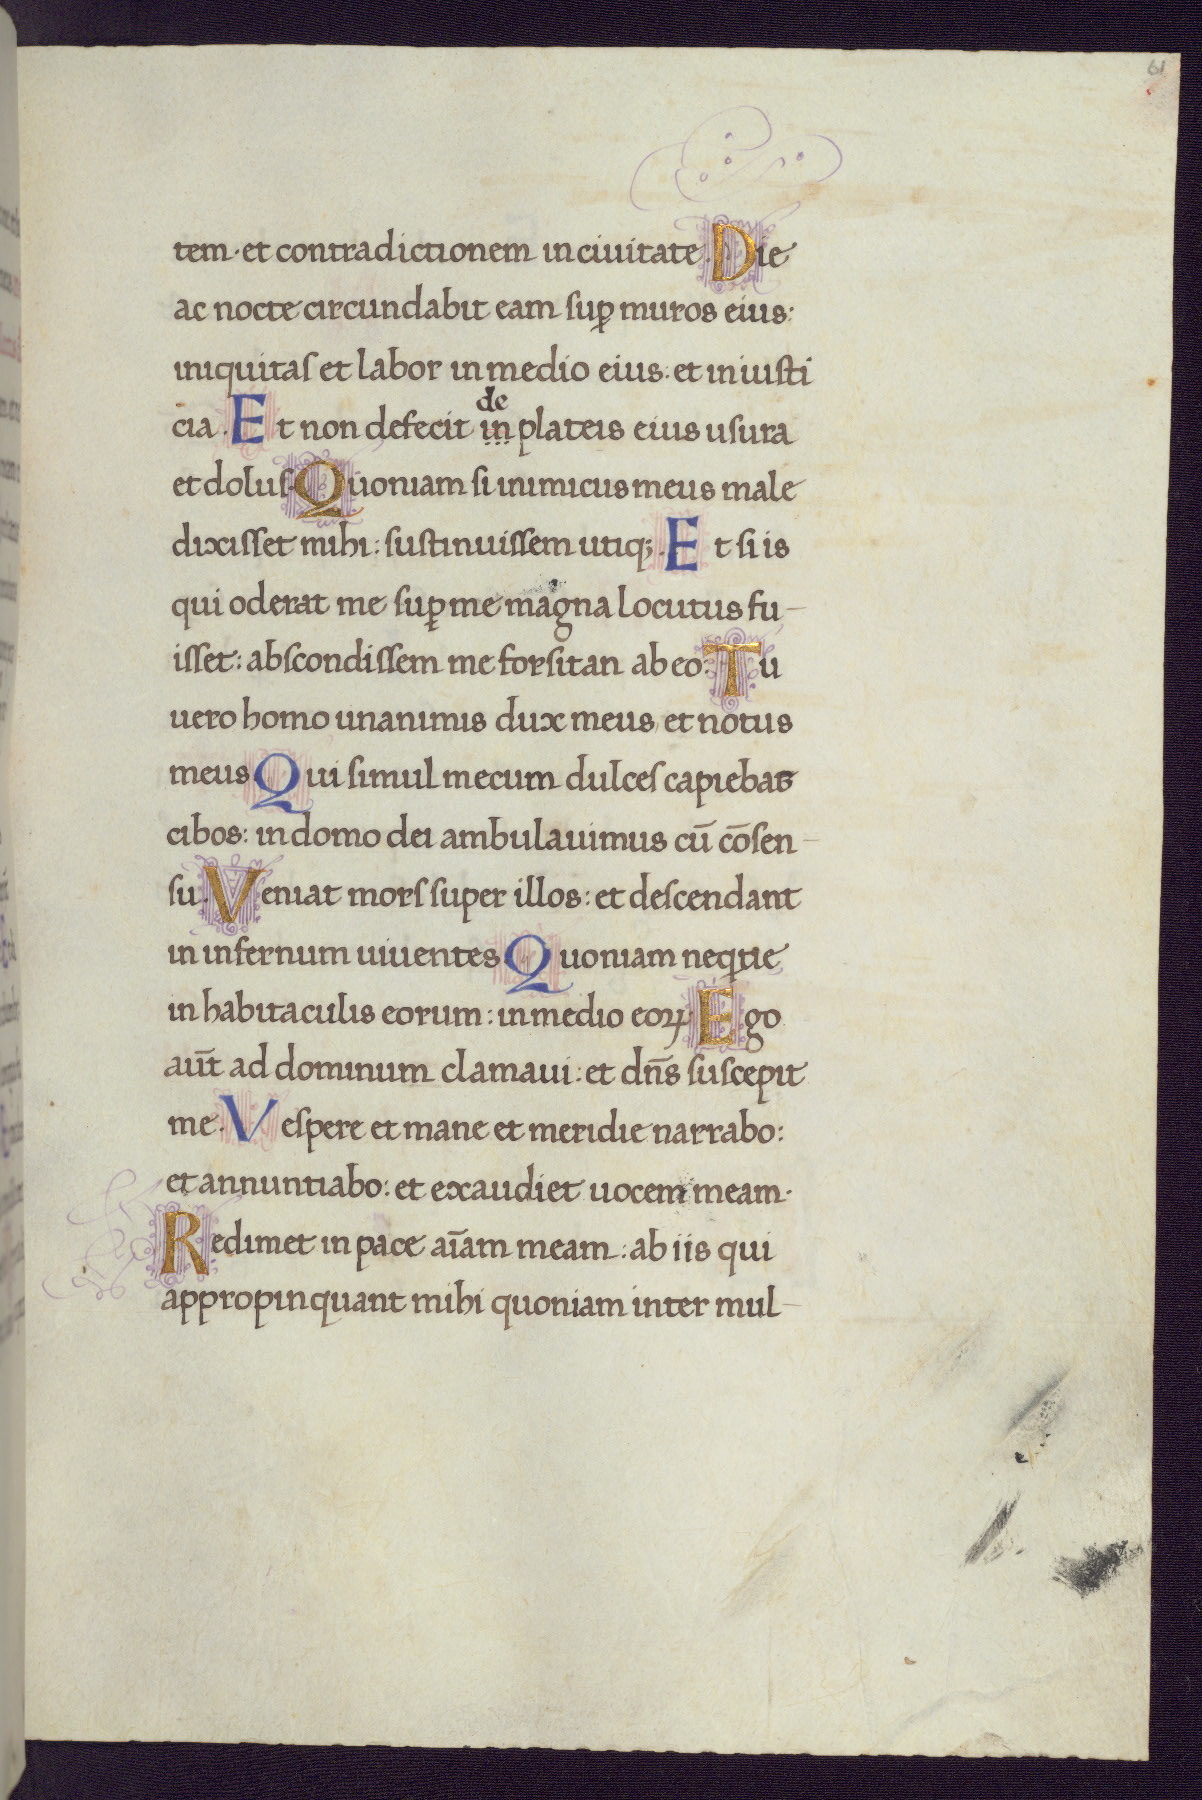 61
tem · et contradictionem in ciuitate. Die
ac nocte circundabit eam suꝑ muros eius:
iniquitas et labor in medio eius: et iniusti
de
cia. Et non defecit in plateis eius usura
et dolus. Quoniam si inimicus meus male
dixisset mihi: sustinuissem utiqꝫ. Et si is
qui oderat me suꝑ me magna locutus fu-
isset: abscondissem me forsitan ab eo. Tu
uero homo unanimis dux meus, et notus
meus. Qui simul mecum dulces capiebas
cibos: in domo dei ambulauimus cū cōsen-
su. Veniat mors super illos: et descendant
in infernum uiuentes. Quoniam neqͥtie
in habitaculis eorum: in medio eoꝝ. Ego
aūt ad dominum clamaui: et dn̄s suscepit
me. Vespere et mane et meridie narrabo:
et annuntiabo: et exaudiet uocem meam.
Redimet in pace aīam meam: ab iis qui
appropinquant mihi quoniam inter mul-